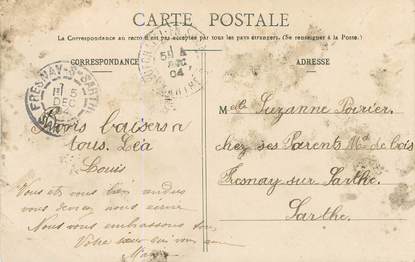 CARTE POSTALE
La Correspondance au recto n'est pas acceptée par tous les pays étrangers. (Se renseigner à la Poste.)
CORRESPONDANCE
ADRESSE
FRESNAY-S-SARTHE
5
DEC
04
5
DEC
04
baisers à
tous. Léa
Louis
Vous êtes bien
vous devez nous écrire
Nous vous embrassons
Votre sœur qui vous
Melle Suzanne Poirier
chez ses Parents Md de bois
Fresnay sur Sarthe
Sarthe.